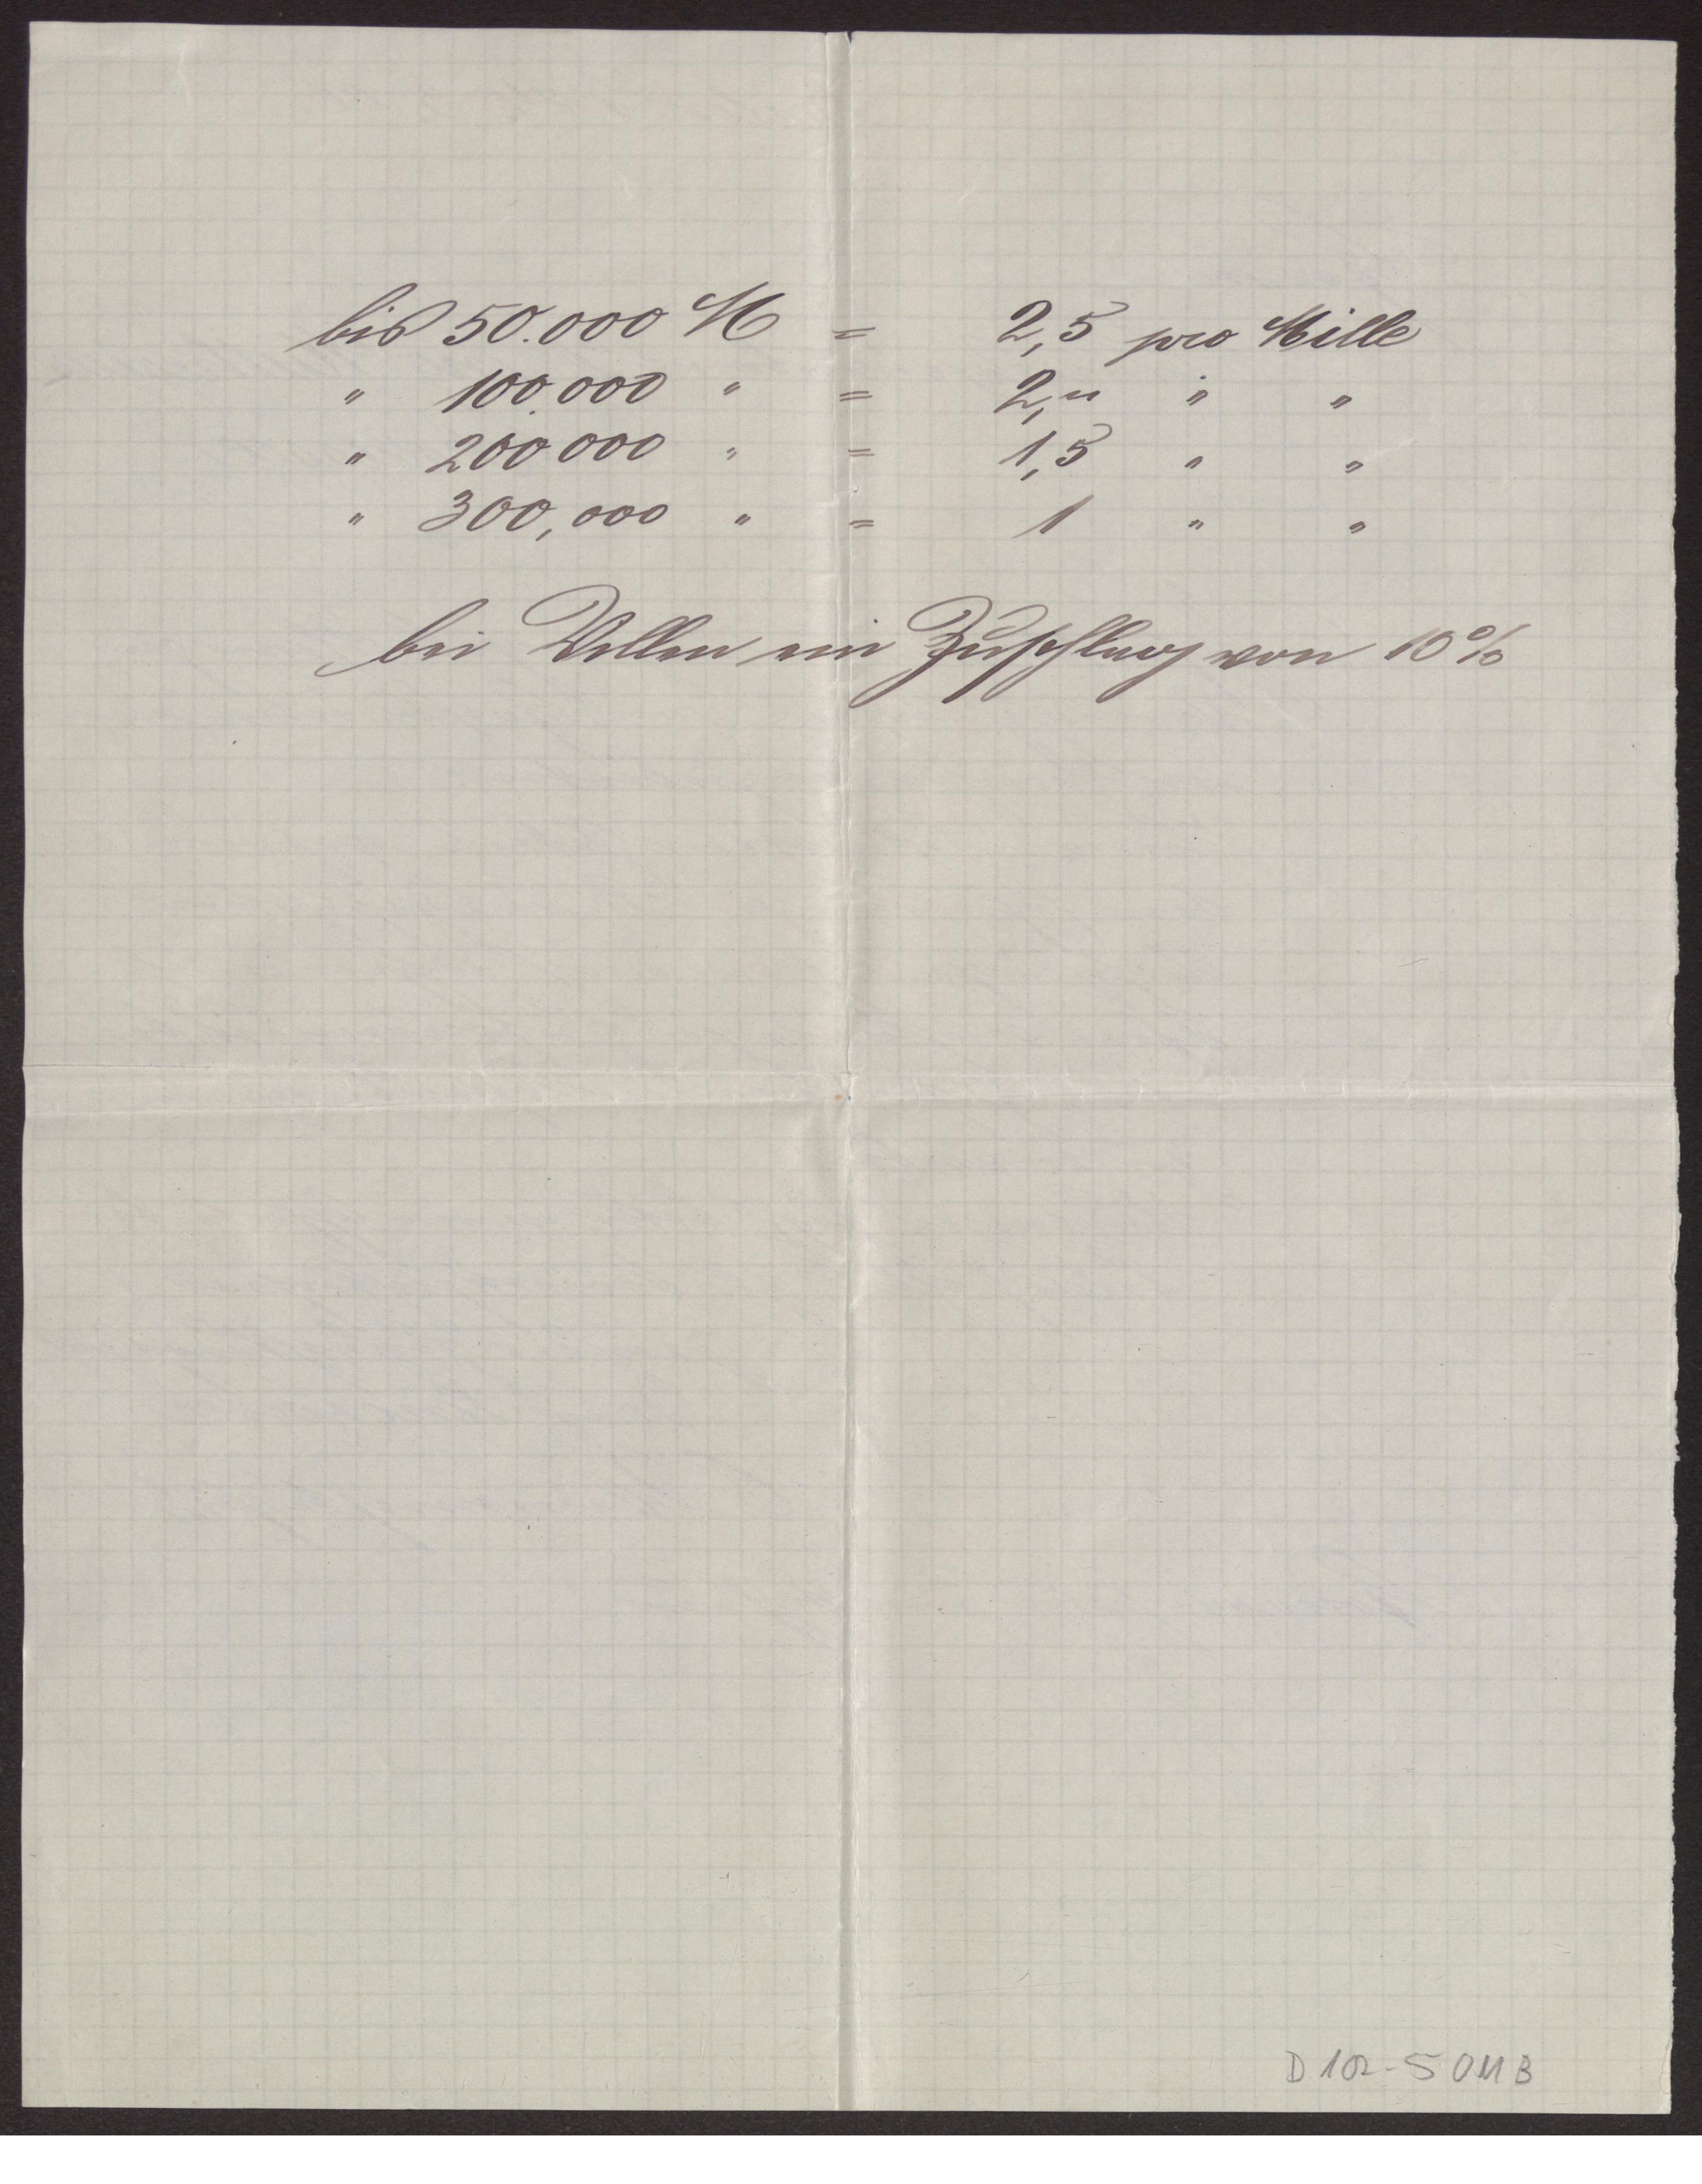 bis 50.000 M = 2,5 pro Mille
" 100.000 " = 2,„ " "
" 200000 " = 1,5 " "
" 300,000 " = 1 " "
bei Villen ein Zuschlag von 10%
D 102-5 011 B